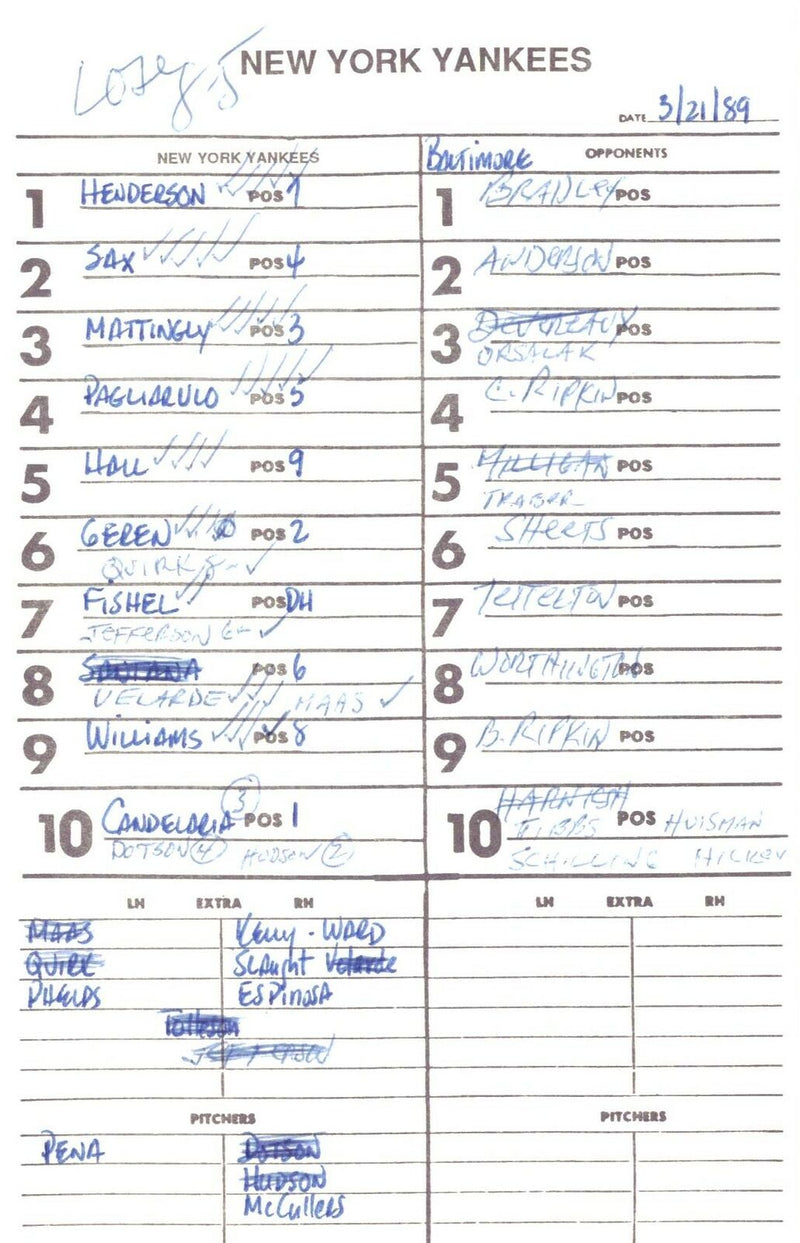 NEW YORK YANKEES
DATE 3/21/89
NEW YORK YANKEES
1 HENDERSON POS 7
2 SAX POS 4
3 MATTINGLY POS 3
4 PAGLIARULO POS 5
5 HALL POS 9
6 GEREN POS 2
QUIRK 8-
7 FISHEL POS DH
JEFFERSON
8 SANTANA POS 6
VELARDE MAAS
9 WILLIAMS POS 8
10 CANDELARIA 3 POS 1
DOTSON 4 HUDSON 2
BALTIMORE OPPONENTS
1 BRADLEY POS
2 ANDERSON POS
3 DEVEREAUX POS
ORSALAK
4 C. RIPKIN POS
5 MILLIGAN POS
TRABER
6 SHEETS POS
7 TETTELTON POS
8 WORTHINGTON POS
9 B. RIPKIN POS
10 HARNISH POS HUISMAN
TIBBS
SCHILLING HICKEY
LH EXTRA RH
MAAS Kelly - WARD
QUIRK Slaught Velarde
PHELPS ESPINOSA
Tolleson
JEFFERSON
PITCHERS
PENA DOTSON
HUDSON
McCullers
LH EXTRA RH
PITCHERS